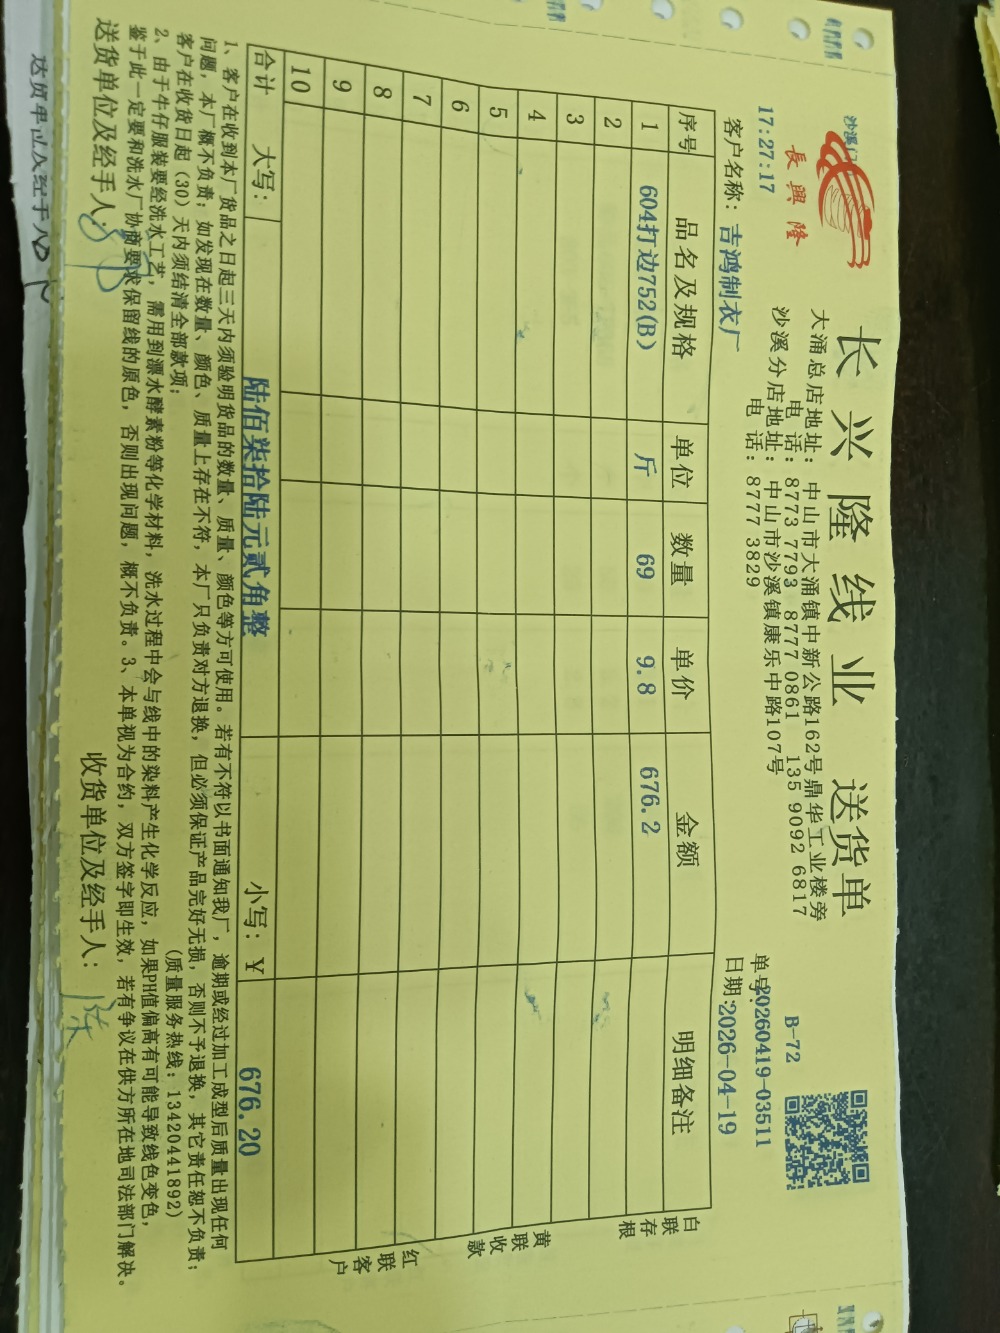 沙溪门
長興隆
长兴隆线业 送货单
大涌总店地址：中山市大涌镇中新公路162号鼎华工业楼旁
电 话：8773 7793 8777 0861 135 9092 6817
沙溪分店地址：中山市沙溪镇康乐中路107号
电 话：8777 3829
B-72
17:27:17
单号:20260419-03511
客户名称：吉鸿制衣厂
日期:2026-04-19
序号 品名及规格 单位 数量 单价 金额 明细备注
1 604打边752(B) 斤 69 9.8 676.2
2
3
4
5
6
7
8
9
10
合计 大写： 陆佰柒拾陆元贰角整 小写：￥ 676.20
白联存根
黄联收款
红联客户
1、客户在收到本厂货品之日起三天内须验明货品的数量、质量、颜色等方可使用。若有不符以书面通知我厂，逾期或经过加工成型后质量出现任何
问题，本厂概不负责；如发现在数量、颜色、质量上存在不符，本厂只负责对方退换，但必须保证产品完好无损，否则不予退换，其它责任恕不负责；
客户在收货日起（30）天内须结清全部款项；
(质量服务热线：13420441892)
2、由于牛仔服装要经洗水工艺，需用到漂水酵素粉等化学材料，洗水过程中会与线中的染料产生化学反应，如果PH值偏高有可能导致线色变色，
鉴于此一定要和洗水厂协商要求保留线的原色，否则出现问题，概不负责。3、本单视为合约，双方签字即生效，若有争议在供方所在地司法部门解决。
送货单位及经手人：
收货单位及经手人：
送货单位及经手人